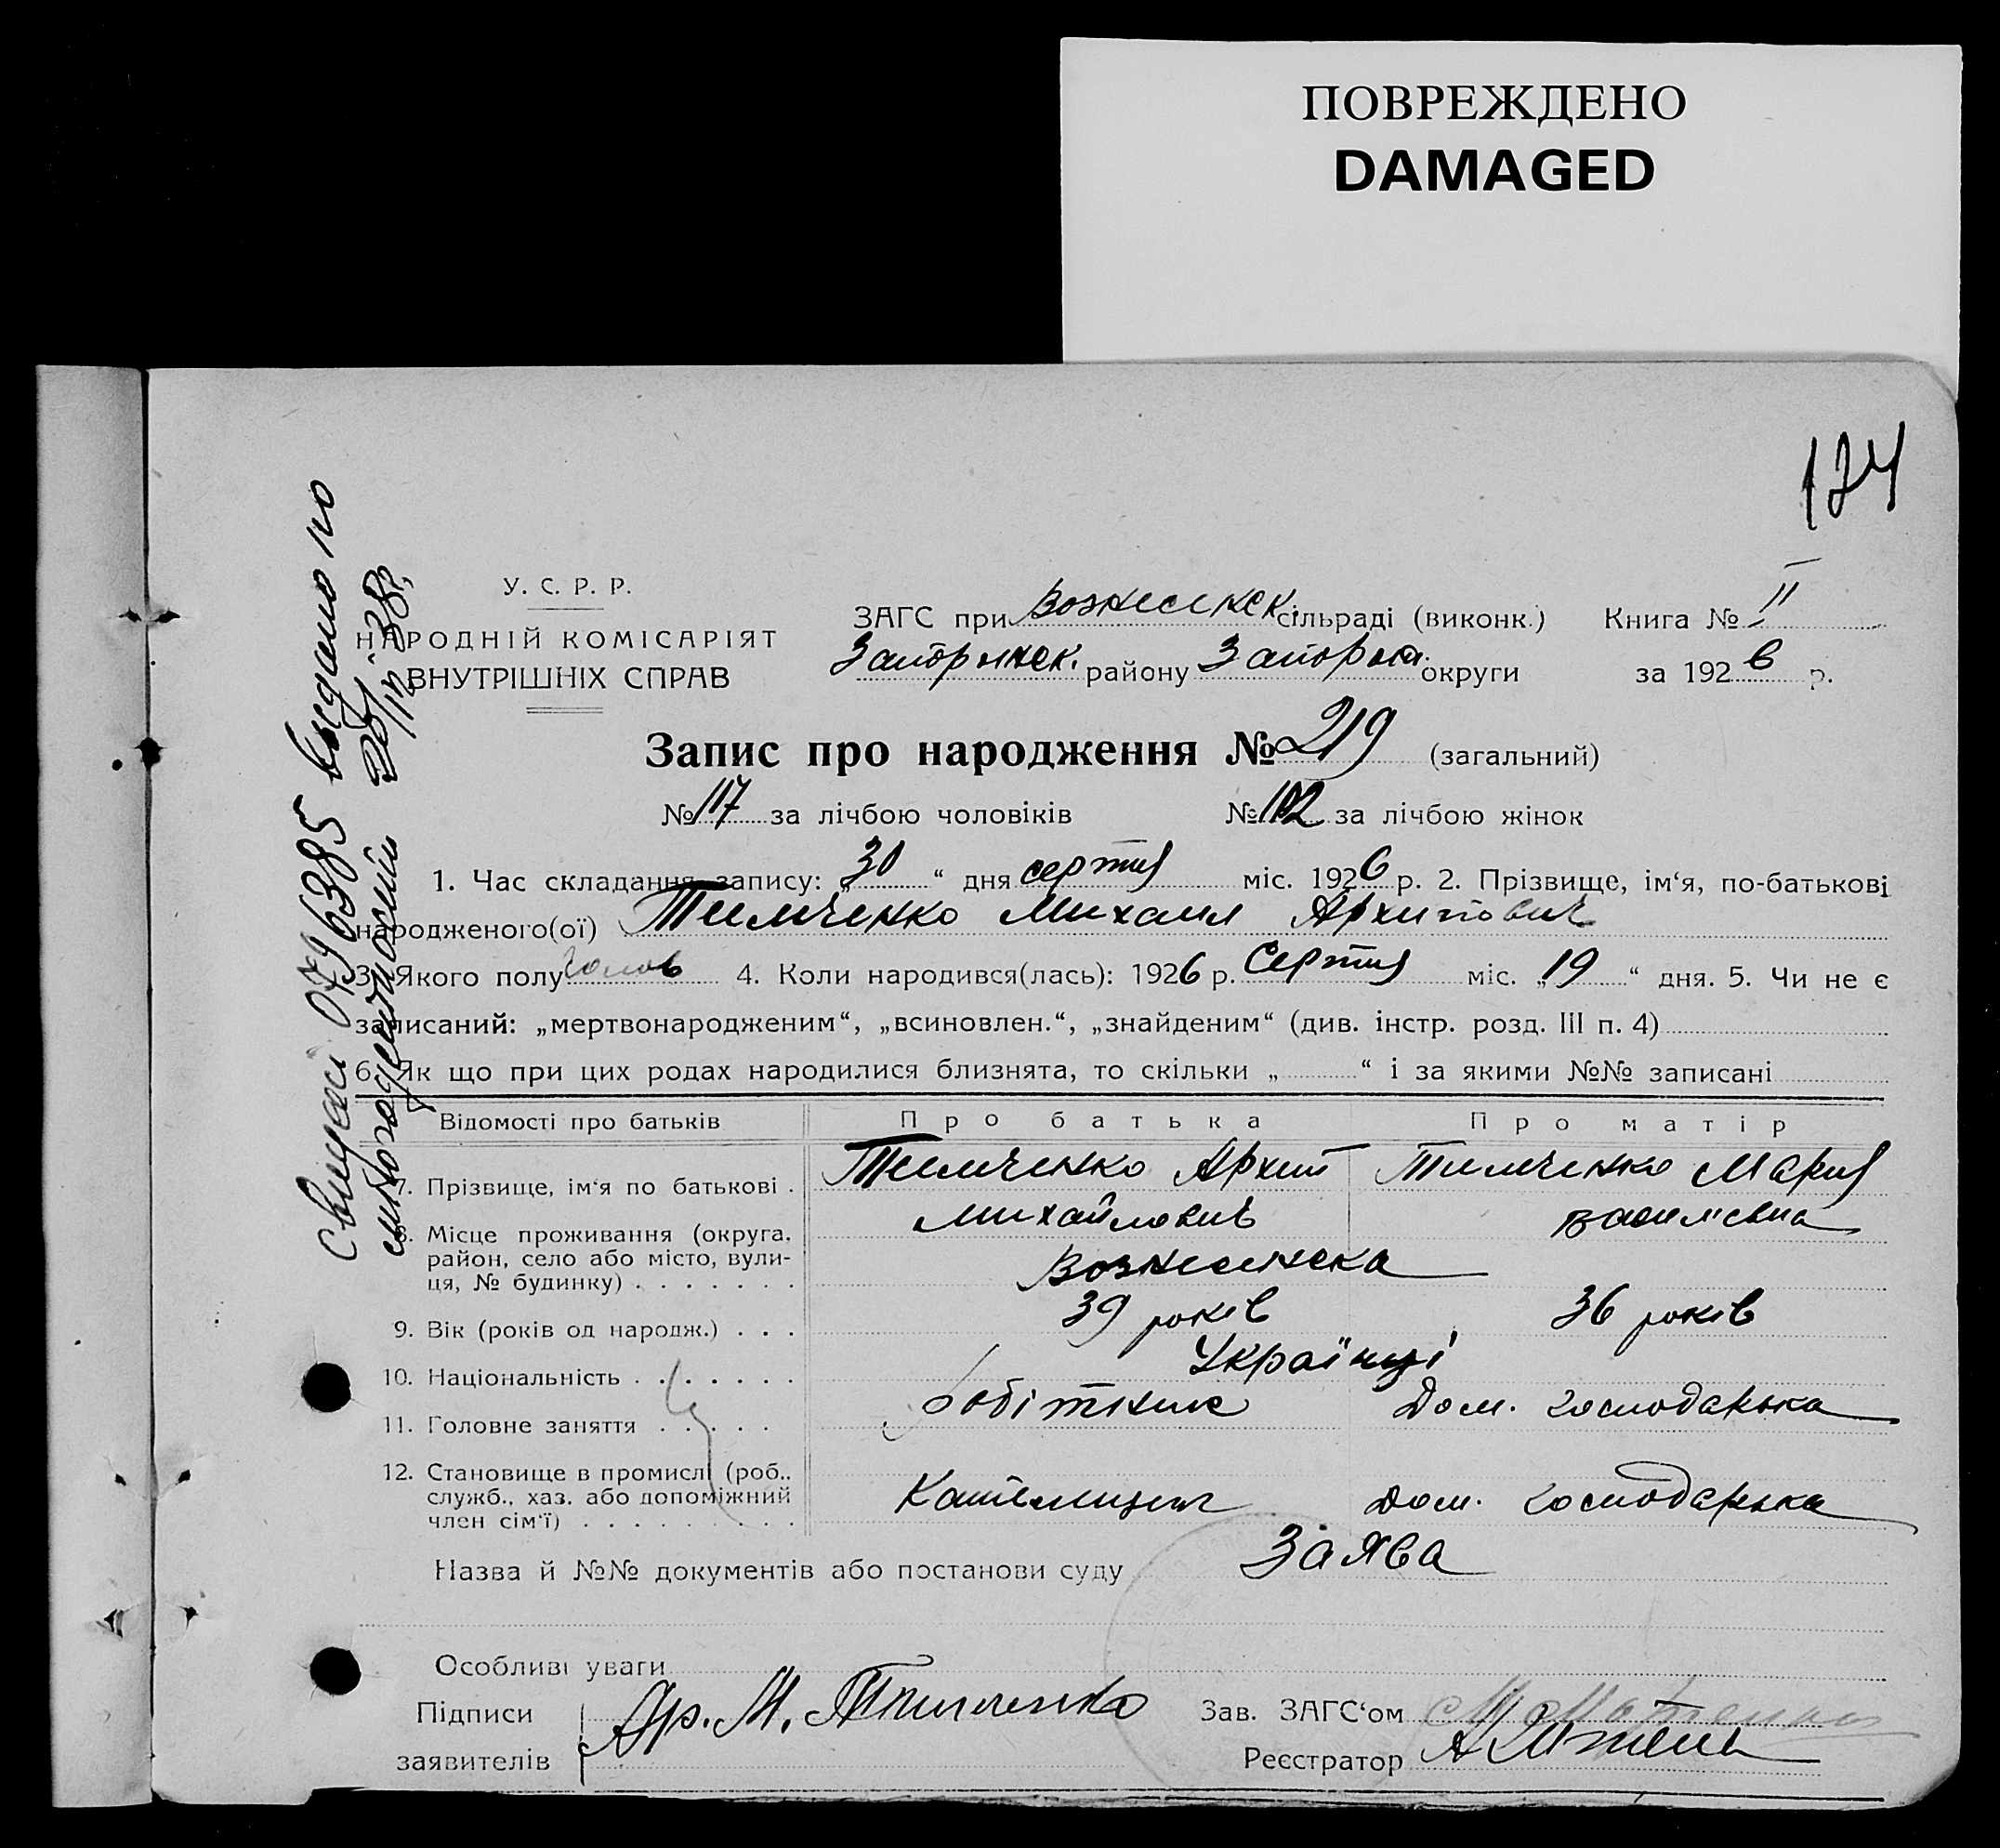 ПОВРЕЖДЕНО
DAMAGED
124
У. С. Р. Р.
НАРОДНІЙ КОМІСАРІЯТ
ВНУТРІШНІХ СПРАВ
ЗАГС при Вознесенск сільраді (виконк.) Книга № II
Запорижск. району Запорож. округи за 1926 р.
Запис про народження № 219 (загальний)
№ 117 за лічбою чоловіків № 102 за лічбою жінок
1. Час складання запису: „30“ дня серпня міс. 1926 р. 2. Прізвище, ім‘я, по-батькові
народженого(ої) Тимченко Михаил Архипович
3. Якого полу чолов 4. Коли народився(лась): 1926 р. Серпня міс. „19“ дня. 5. Чи не є
записаний: „мертвонародженим“, „всиновлен.“, „знайденим“ (див. інстр. розд. III п. 4)
6. Як що при цих родах народилися близнята, то скільки „ “ і за якими №№ записані
Відомості про батьків Про батька Про матір
7. Прізвище, ім‘я по батькові . Тимченко Архип Михайлович Тимченко Мария
8. Місце проживання (округа, район, село або місто, вулиця, № будинку) . . . . . . . Вознесенска
9. Вік (років од народж.) . . . 39 років 36 років
10. Національність . . . . . . . Українці
11. Головне заняття . . . . . робітник Дом. господарька
12. Становище в промислі (роб., служб., хаз. або допоміжний член сім‘ї) . . . . . . . . . Дом. господарька
Назва й №№ документів або постанови суду Заява
Особливі уваги
Підписи
заявителів
Ар. М. Тимченко
Зав. ЗАГС‘ом
Реєстратор
выдано по
многодетности